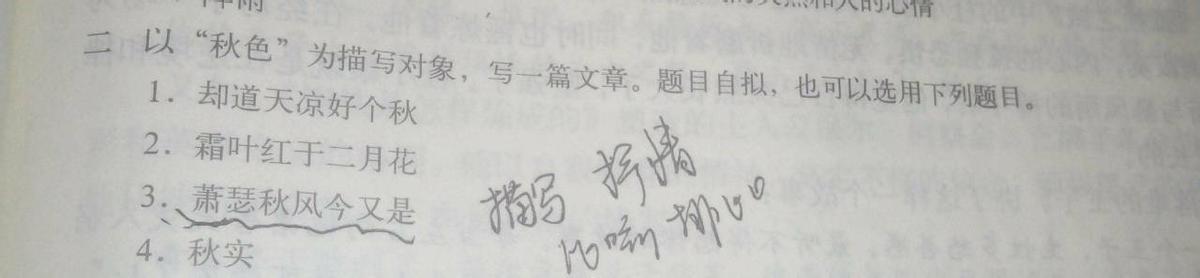 的灵然和人的心情
二 以“秋色”为描写对象，写一篇文章。题目自拟，也可以选用下列题目。
1. 却道天凉好个秋
2. 霜叶红于二月花
3. 萧瑟秋风今又是
描写 抒情
比喻 排比
4. 秋实